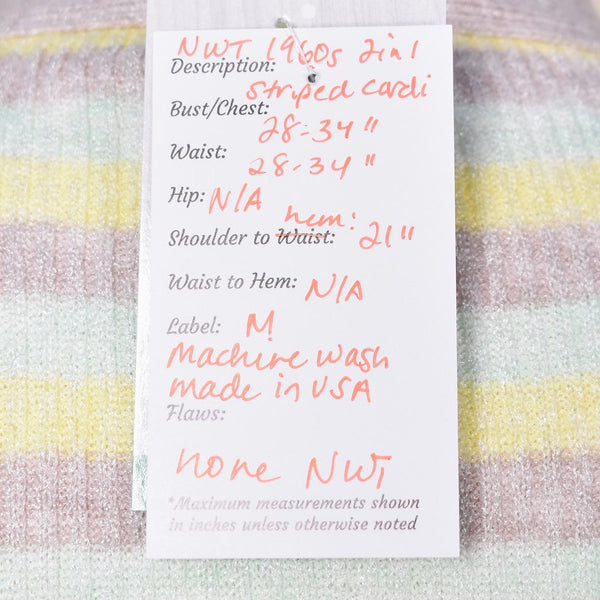 NWT 1960s 2in1
Description:
striped cardi
Bust/Chest:
28-34"
Waist:
28-34"
Hip: N/A
hem:
Shoulder to Waist: 21"
Waist to Hem: N/A
Label: M
Machine wash
made in USA
Flaws:
none NWT
*Maximum measurements shown
in inches unless otherwise noted